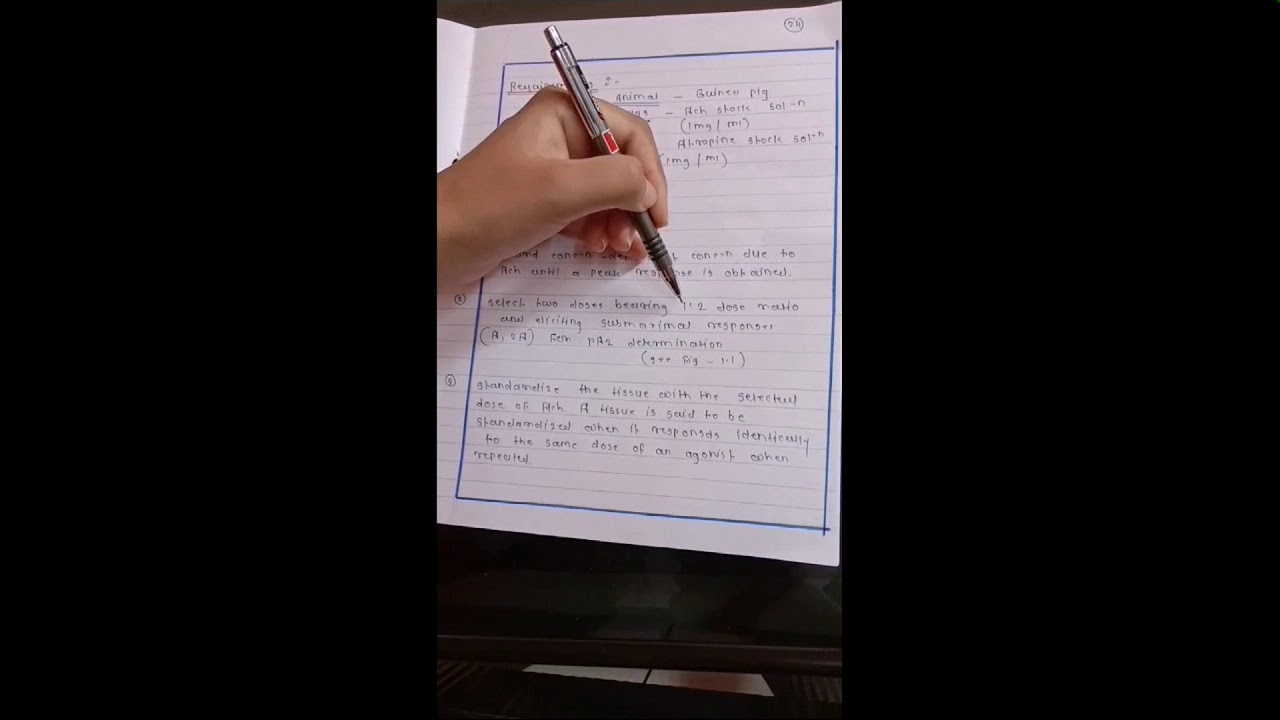 24
Animal - Guinea pig
- Ach stock sol-n
(1mg / ml)
Atropine stock sol-n
(1mg / ml)
conc-n due to
Ach until a peak response is obtained.
select two doses bearing 1:2 dose ratio
and eliciting submaximal responses
(A, 2A) for pA2 determination
(see fig - 1.1)
standardize the tissue with the selected
dose of Ach. A tissue is said to be
standardized when it responds identically
to the same dose of an agonist when
repeated.